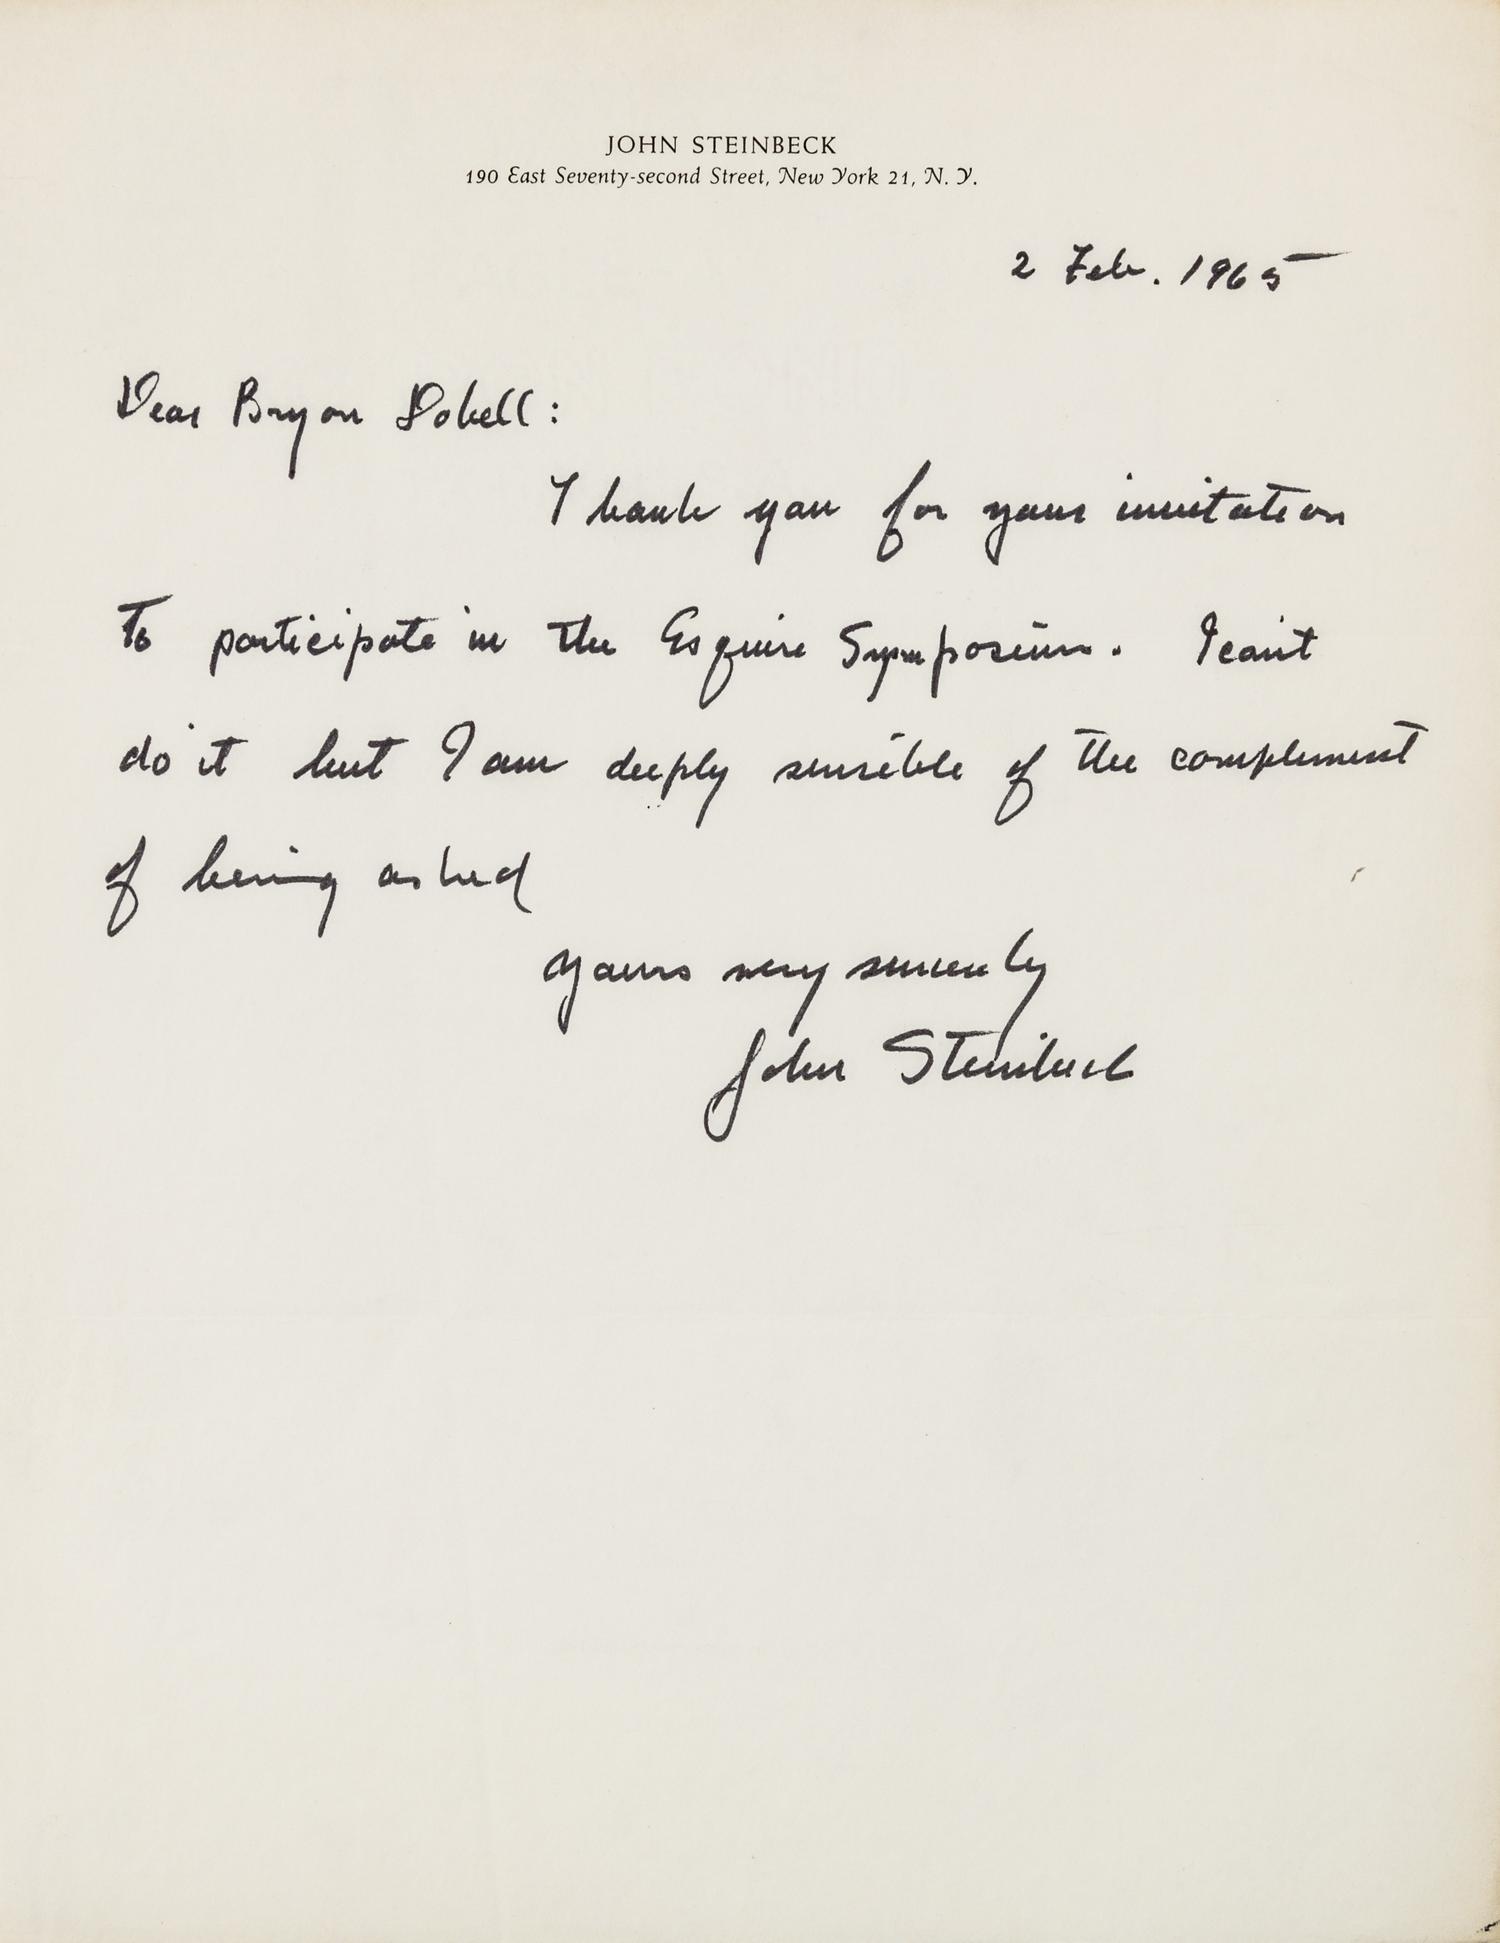 JOHN STEINBECK
190 East Seventy-second Street, New York 21, N. Y.
2 Feb. 1965
Dear Bryon Dobell:
Thank you for your invitation
To participate in the Esquire Symposium. I can't
do it but I am deeply sensible of the complement
of being asked
Yours very sincerely
John Steinbeck